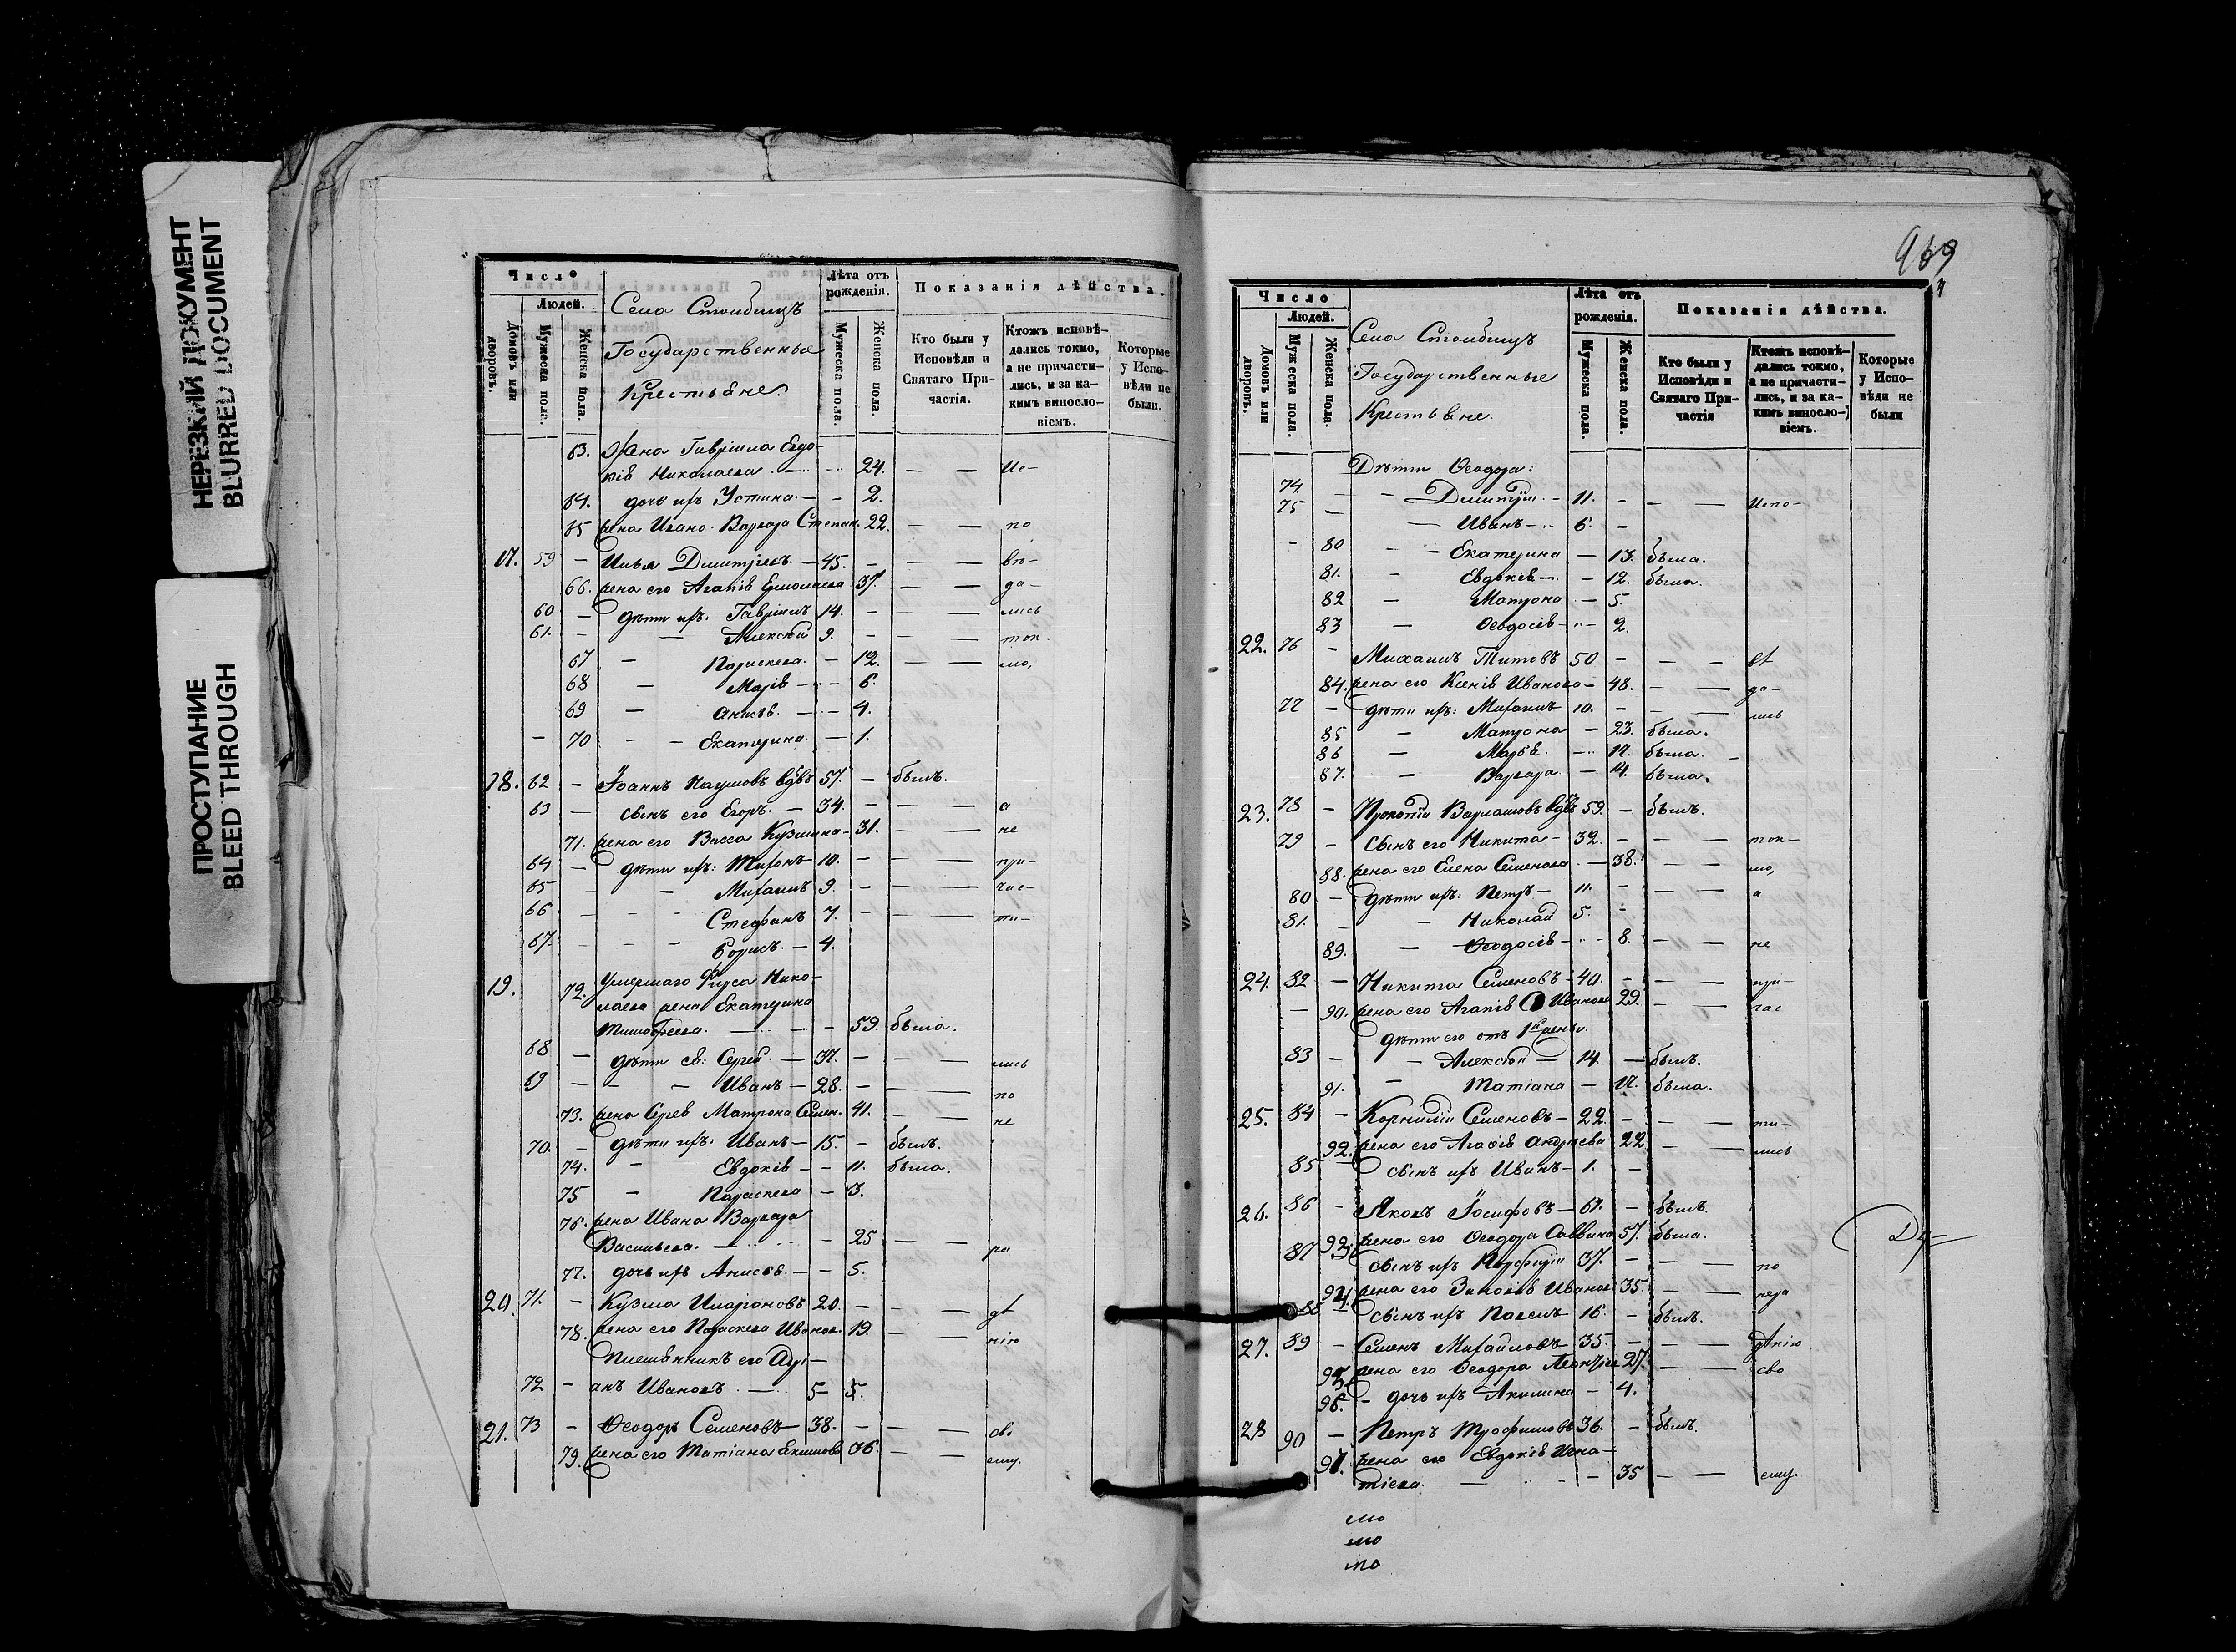 НЕРЕЗКИЙ ДОКУМЕНТ
BLURRED DOCUMENT
ПРОСТУПАНИЕ
BLEED THROUGH
Число
Людей.
Домовъ или дворовъ.
Мужеска пола.
Женска пола.
Села Столбищъ
Государственные
Крестьяне.
Лѣта отъ рожденія.
Мужеска пола.
Женска пола.
Показанія дѣйства.
Кто были у Исповѣди и Святаго Причастія.
Ктожъ исповѣдались токмо, а не причастились, и за какимъ винословіемъ.
Которые у Исповѣди не были.
63. Жена Гавріила Евдо-
кія Николаева. — 24. — — Ис-
64. дочь ихъ Устина. — - 2.
65 жена Ивана. Варвара Степан. 22. — — по
17. 59 — Илья Димитріевъ. — 45. - — — вѣ-
66. жена его Агапія Ермолаева 37. — — да-
60 — дѣти ихъ: Гавріилъ 14. - — — лись
61. - — Алексѣй 9. - — — ток.
67 — Параскева. — 12. — — мо,
68 — Марія - - 6.
69 — Анисія. — - 4.
- 70 - — Екатерина. — 1.
18. 62 — Іоаннъ Наумовъ вдвъ 57. — былъ.
63 — сынъ его Егоръ. — 34. - — — а
71. жена его Васса Кузмина - 31. — — не
64 — дѣти ихъ: Тихонъ - 10. - — — при-
65 — - Михаилъ 9. - — — час-
66 — - - Стефанъ 7. - — — ти-
67. — - — Борисъ. — 4.
19. 72. Умершаго Фирса Нико-
лаева жена Екатерина
Тимофеева. — - — 59. была.
68 — дѣти ея: Сергей. — 37. — — — лись
69 — - — Иванъ — 28. — — по
73. жена Сергея Матрона Семен. 41. — — не
70. — дѣти ихъ: Иванъ — 15. - былъ.
74. — Евдокія - - 11. была.
75 — Параскева — 3.
76. жена Ивана Варвара
Васильева. — - 25 — — ра
77. дочь ихъ Анисія. - - 5.
20. 71. — Кузма Иларіоновъ 20. — — — дѣ
78. жена его Параскева Иванов. 19. — — нію
Племянникъ его Адрі-
72 — анъ Ивановъ. — 5- 5.
21. 73 — Ѳеодоръ Семеновъ — 38. — — — сво
79. жена его Татіана Екимова 36. — — ему.
969
Число
Людей.
Домовъ или дворовъ.
Мужеска пола.
Женска пола.
Села Столбищъ
Государственные
Крестьяне.
Лѣта отъ рожденія.
Мужеска пола.
Женска пола.
Показанія дѣйства.
Кто были у Исповѣди и Святаго Причастія
Ктожъ исповѣдались токмо, а не причастились, и за какимъ винословіемъ.
Которые у Исповѣди не были
Дѣти Ѳеодора:
74. — — Димитрій. — 11. - — — Испо-
75 — — Иванъ — 6. -
- 80 - — Екатерина — 13. была.
81. - Евдокія — - 12. была.
82 — Матрона — 5.
83 — Ѳеодосія — 2.
22. 76 — Михаилъ Титовъ 50 - — — вѣ
84. жена его Ксенія Иванова - 48. — — да-
77 — дѣти ихъ: Михаилъ 10. - — — лись
85 — Матрона — 23. была.
86 — Марія. — 17. была.
87. — Варвара. — 14. была.
23. 78 — Прокопій Варламовъ вдвъ 59. — былъ.
79 — сынъ его Никита — 32. — — — ток-
88. жена его Елена Семенова. — 38. — — мо,
80 — дѣти ихъ: Петръ — 11. - — — а
81. — — Николай 5. -
89. — Ѳеодосія — - 8. — — не
24. 82 — Никита Семеновъ — 40. - — — при-
— 90. жена его Агапія Иванова 29. — — час
дѣти его отъ 1й жены.
83 — — Алексѣй — 14. — былъ.
91. — Татіана — 17. была.
25. 84 — Корнилій Семеновъ — 22. - — — ти-
92. жена его Агафія Андреева 22. — — лись
85 — сынъ ихъ Иванъ — 1. -
26. 86 — Яковъ Іосифовъ — 61. - былъ.
93. жена его Ѳеодора Саввина 57. была.
87 — сынъ ихъ Порфирій 37. - — — по
94. жена его Зиновія Иванов. 35 — — нера
88 сынъ ихъ Павелъ — 16. - былъ.
27. 89 — Семенъ Михайловъ — 35. — — — дѣнію
95. жена его Ѳеодора Леонтіев. 27. — — сво
96. — дочь ихъ Акилина — 4.
28 90 — Петръ Трофимовъ 36. - былъ.
97. жена его Евдокія Игна-
тіева. — - 35 — — ему.
мо
мо
по